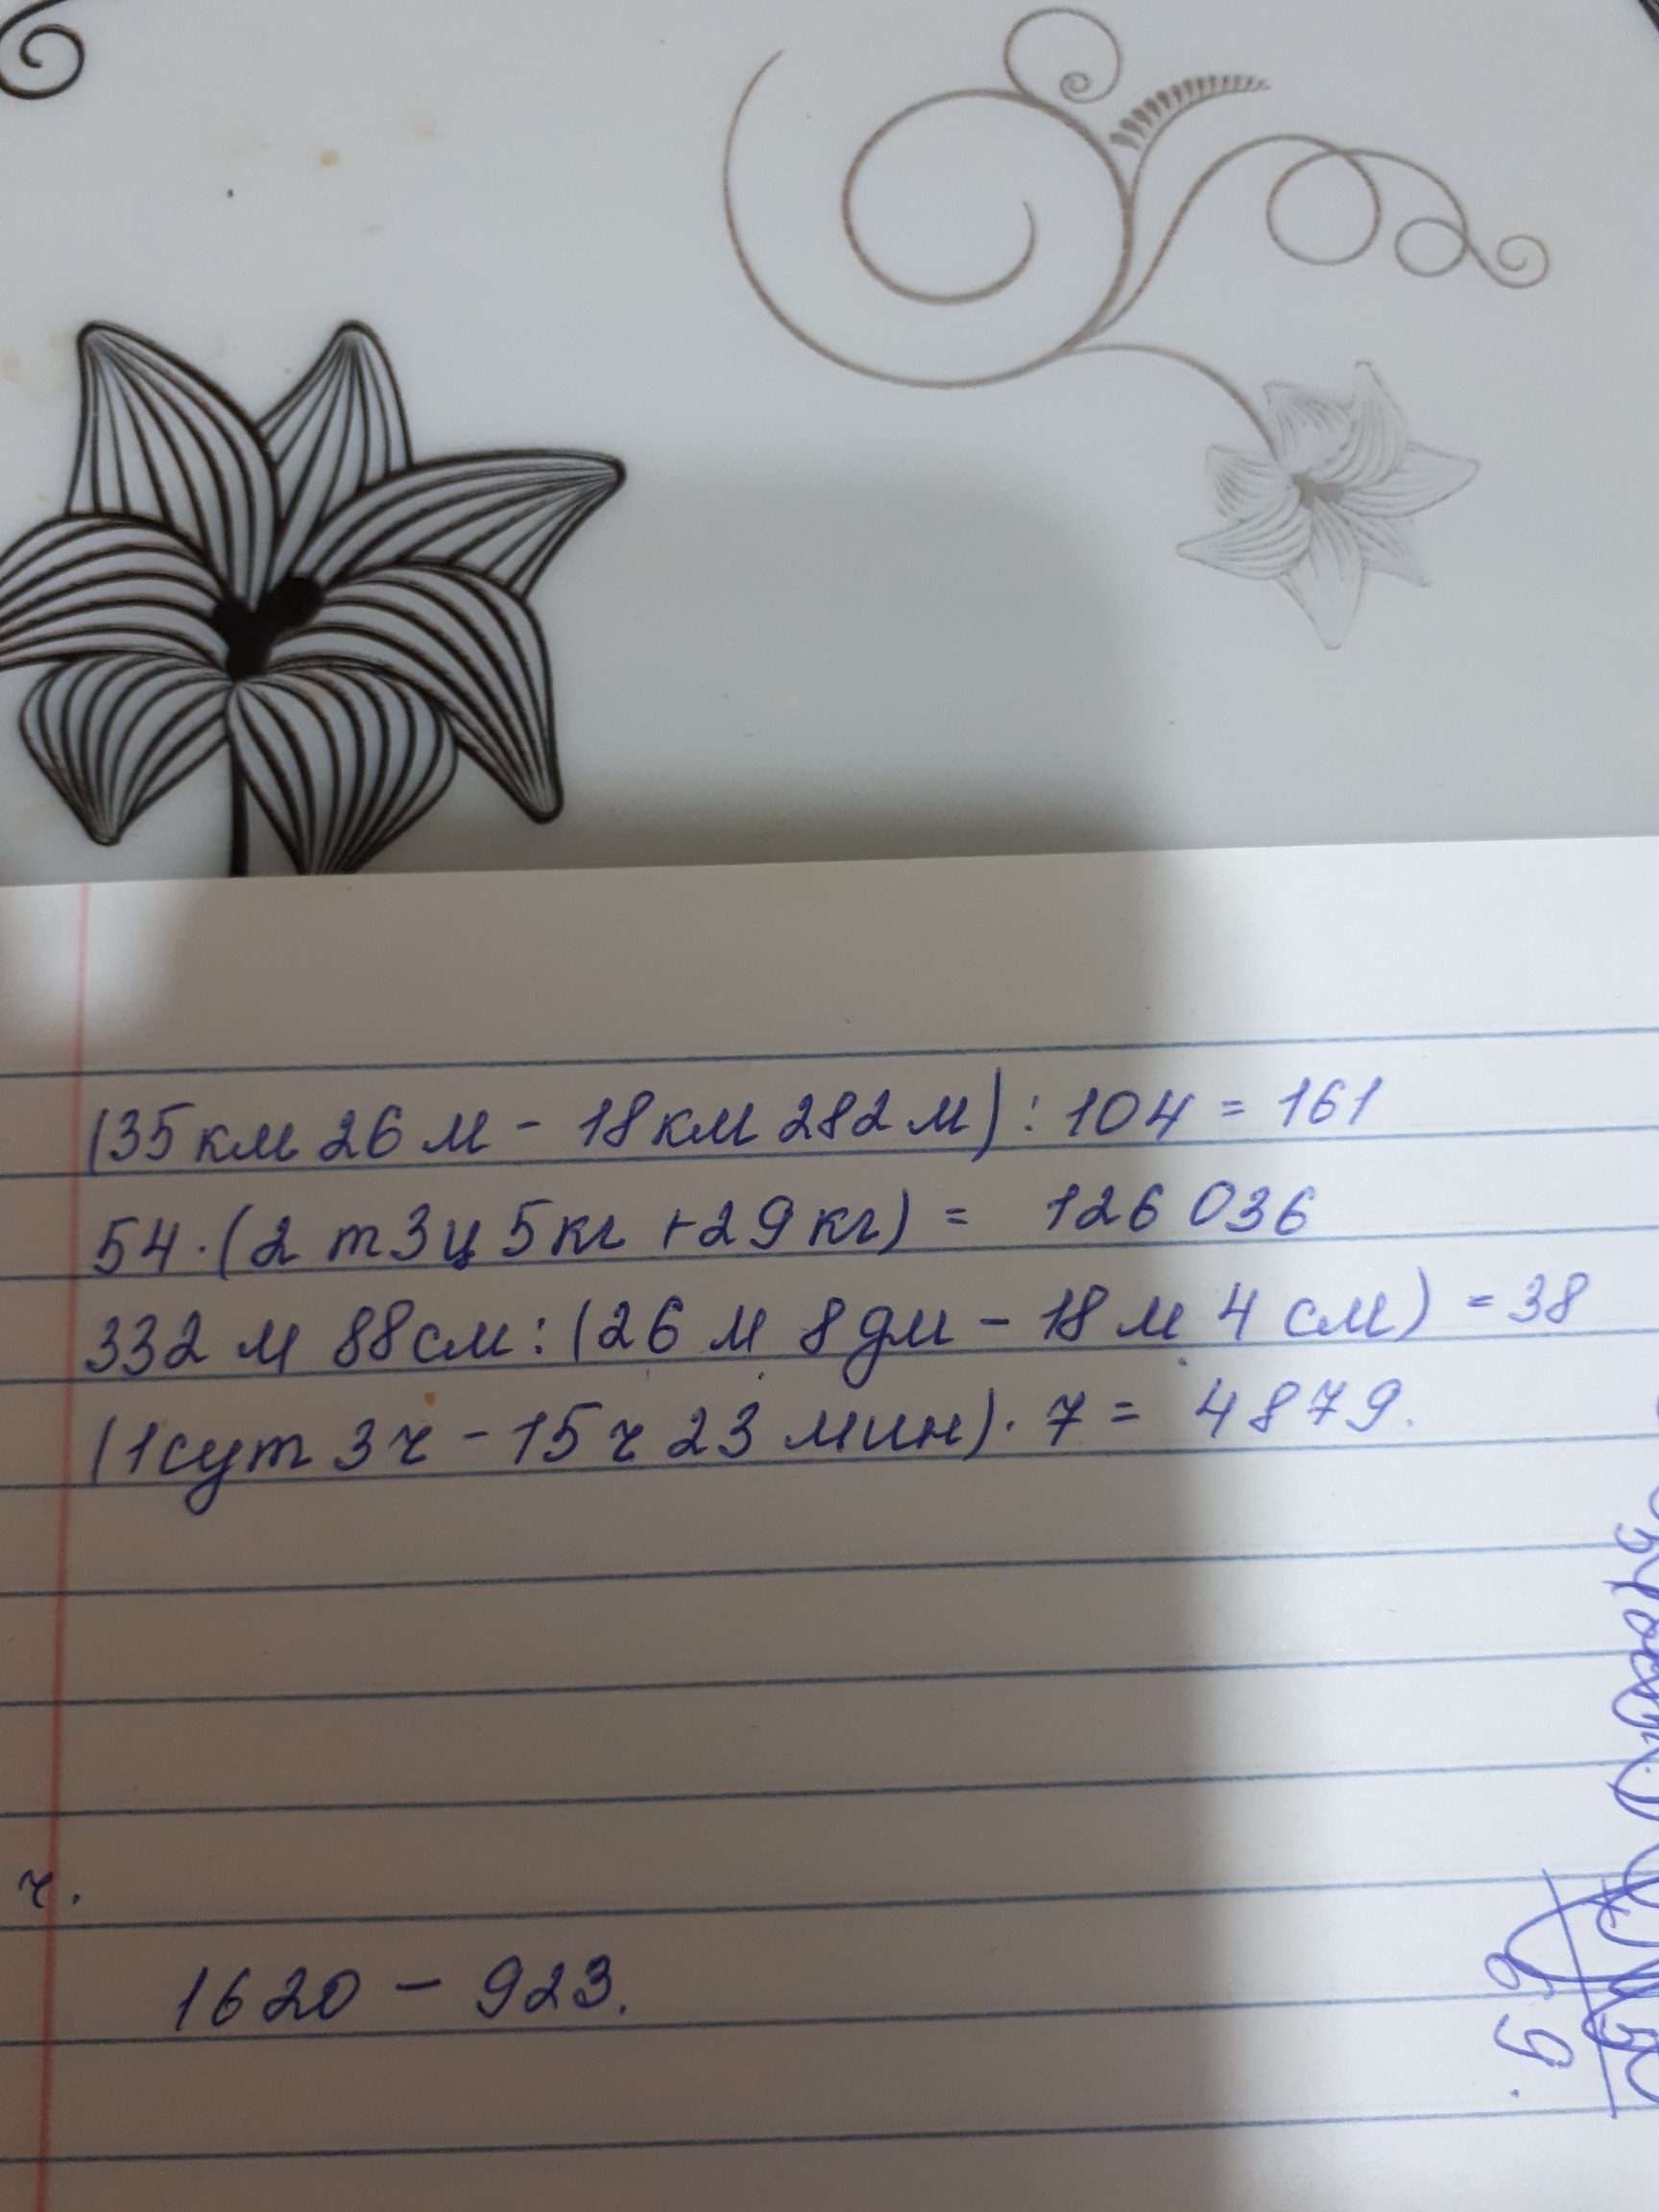 (35км 26 м - 18км 282 м) : 104 = 161
54 · (2 т 3ц 5кг + 29 кг) = 126 036
332 м 88см : (26 м 8дм - 18 м 4 см) = 38
(1сут 3ч - 15ч 23 мин) · 7 = 4879.
ч.
1620 - 923.
69.